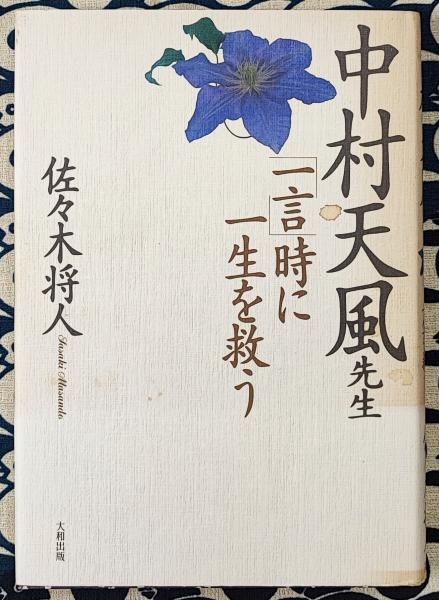 中村天風先生
「一言」時に
一生を救う
佐々木将人
Sasaki Masando
大和出版